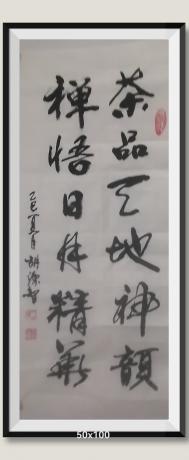 茶品天地神韻
禅悟日月精華
乙巳夏月胡添智
50x100